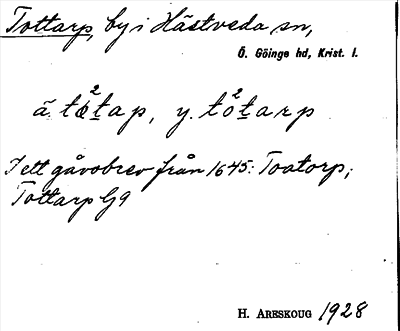 Tottarp, by i Hästveda sn,
Ö. Göinge hd, Krist. l.
ä. to²tap, y. to²tarp
I ett gåvobrev från 1645: Toatorp;
Tottarp G9
H. Areskoug 1928